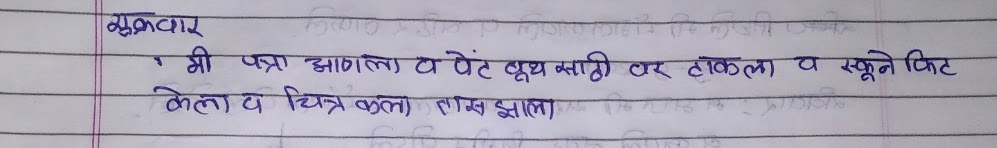 शुक्रवार
मी पत्रा आणला व पेंट बूथ साठी वर टाकला व स्क्रूने फिट
केला व चित्रकला तास झाला